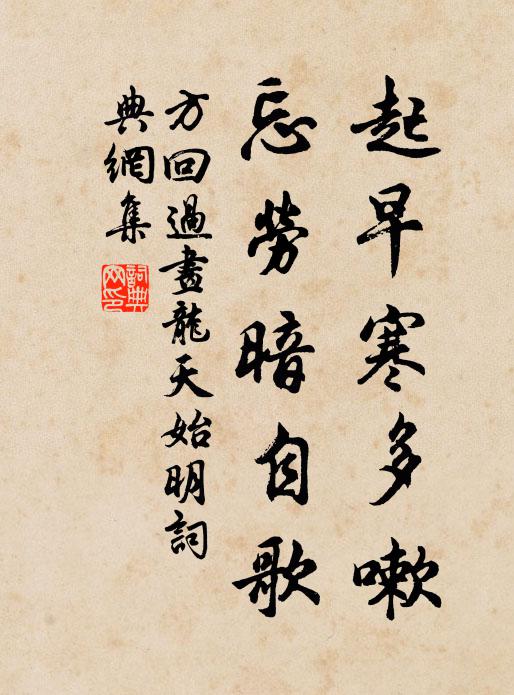 起早寒多嗽
忘勞暗自歌
方回過畫龍天始明詞
典網集
詞典
网印